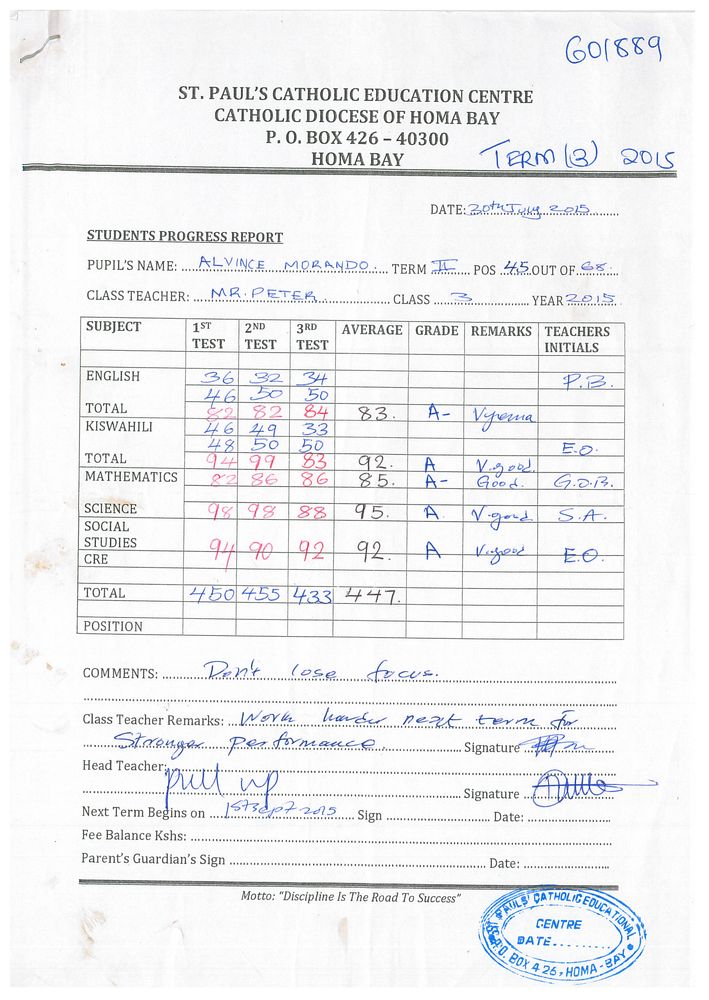 GO1889
ST. PAUL'S CATHOLIC EDUCATION CENTRE
CATHOLIC DIOCESE OF HOMA BAY
P. O. BOX 426 – 40300
HOMA BAY
TERM (3) 2015
DATE: 30th July 2015
STUDENTS PROGRESS REPORT
PUPIL'S NAME: ALVINCE MORANDO. TERM II POS 45 OUT OF 68
CLASS TEACHER: MR. PETER CLASS 3 YEAR 2015
SUBJECT 1ST TEST 2ND TEST 3RD TEST AVERAGE GRADE REMARKS TEACHERS INITIALS
ENGLISH 36 32 34 P.B.
46 50 50
TOTAL 82 82 84 83. A-
KISWAHILI 46 49 33
48 50 50 E.O.
TOTAL 94 99 83 92. A V.good.
MATHEMATICS 82 86 86 85. A- Good. G.O.B.
SCIENCE 98 98 88 95. A V.good S.A.
SOCIAL
STUDIES 94 90 92 92. A V.good E.O.
CRE
TOTAL 450 455 433 447.
POSITION
COMMENTS: Don't lose focus.
Class Teacher Remarks: Work harder next term for
Stronger performance. Signature
Head Teacher: pull up
Signature
Next Term Begins on 1st Sept 2015 Sign Date:
Fee Balance Kshs:
Parent's Guardian's Sign Date:
Motto: "Discipline Is The Road To Success"
ST PAULS' CATHOLIC EDUCATIONAL
CENTRE
DATE
P.O. BOX 426, HOMA-BAY